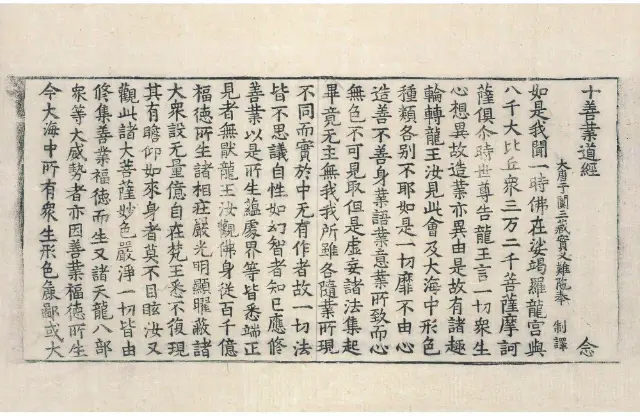 十善業道經 念
大唐于闐三藏實叉難陀奉 制譯
如是我聞一時佛在娑竭羅龍宮與
八千大比丘衆三万二千菩薩摩訶
薩俱尒時世尊告龍王言一切衆生
心想異故造業亦異由是故有諸趣
輪轉龍王汝見此會及大海中形色
種類各別不耶如是一切靡不由心
造善不善身業語業意業所致而心
無色不可見取但是虛妄諸法集起
畢竟无主無我我所雖各隨業所現
不同而實於中无有作者故一切法
皆不思議自性如幻智者知已應修
善業以是所生蘊處界等皆悉端正
見者無猒龍王汝觀佛身從百千億
福德所生諸相莊嚴光明顯曜蔽諸
大衆設无量億自在梵王悉不復現
其有瞻仰如來身者莫不目眩汝又
觀此諸大菩薩妙色嚴淨一切皆由
修集善業福德而生又諸天龍八部
衆等大威勢者亦因善業福德所生
今大海中所有衆生形色麁鄙或大